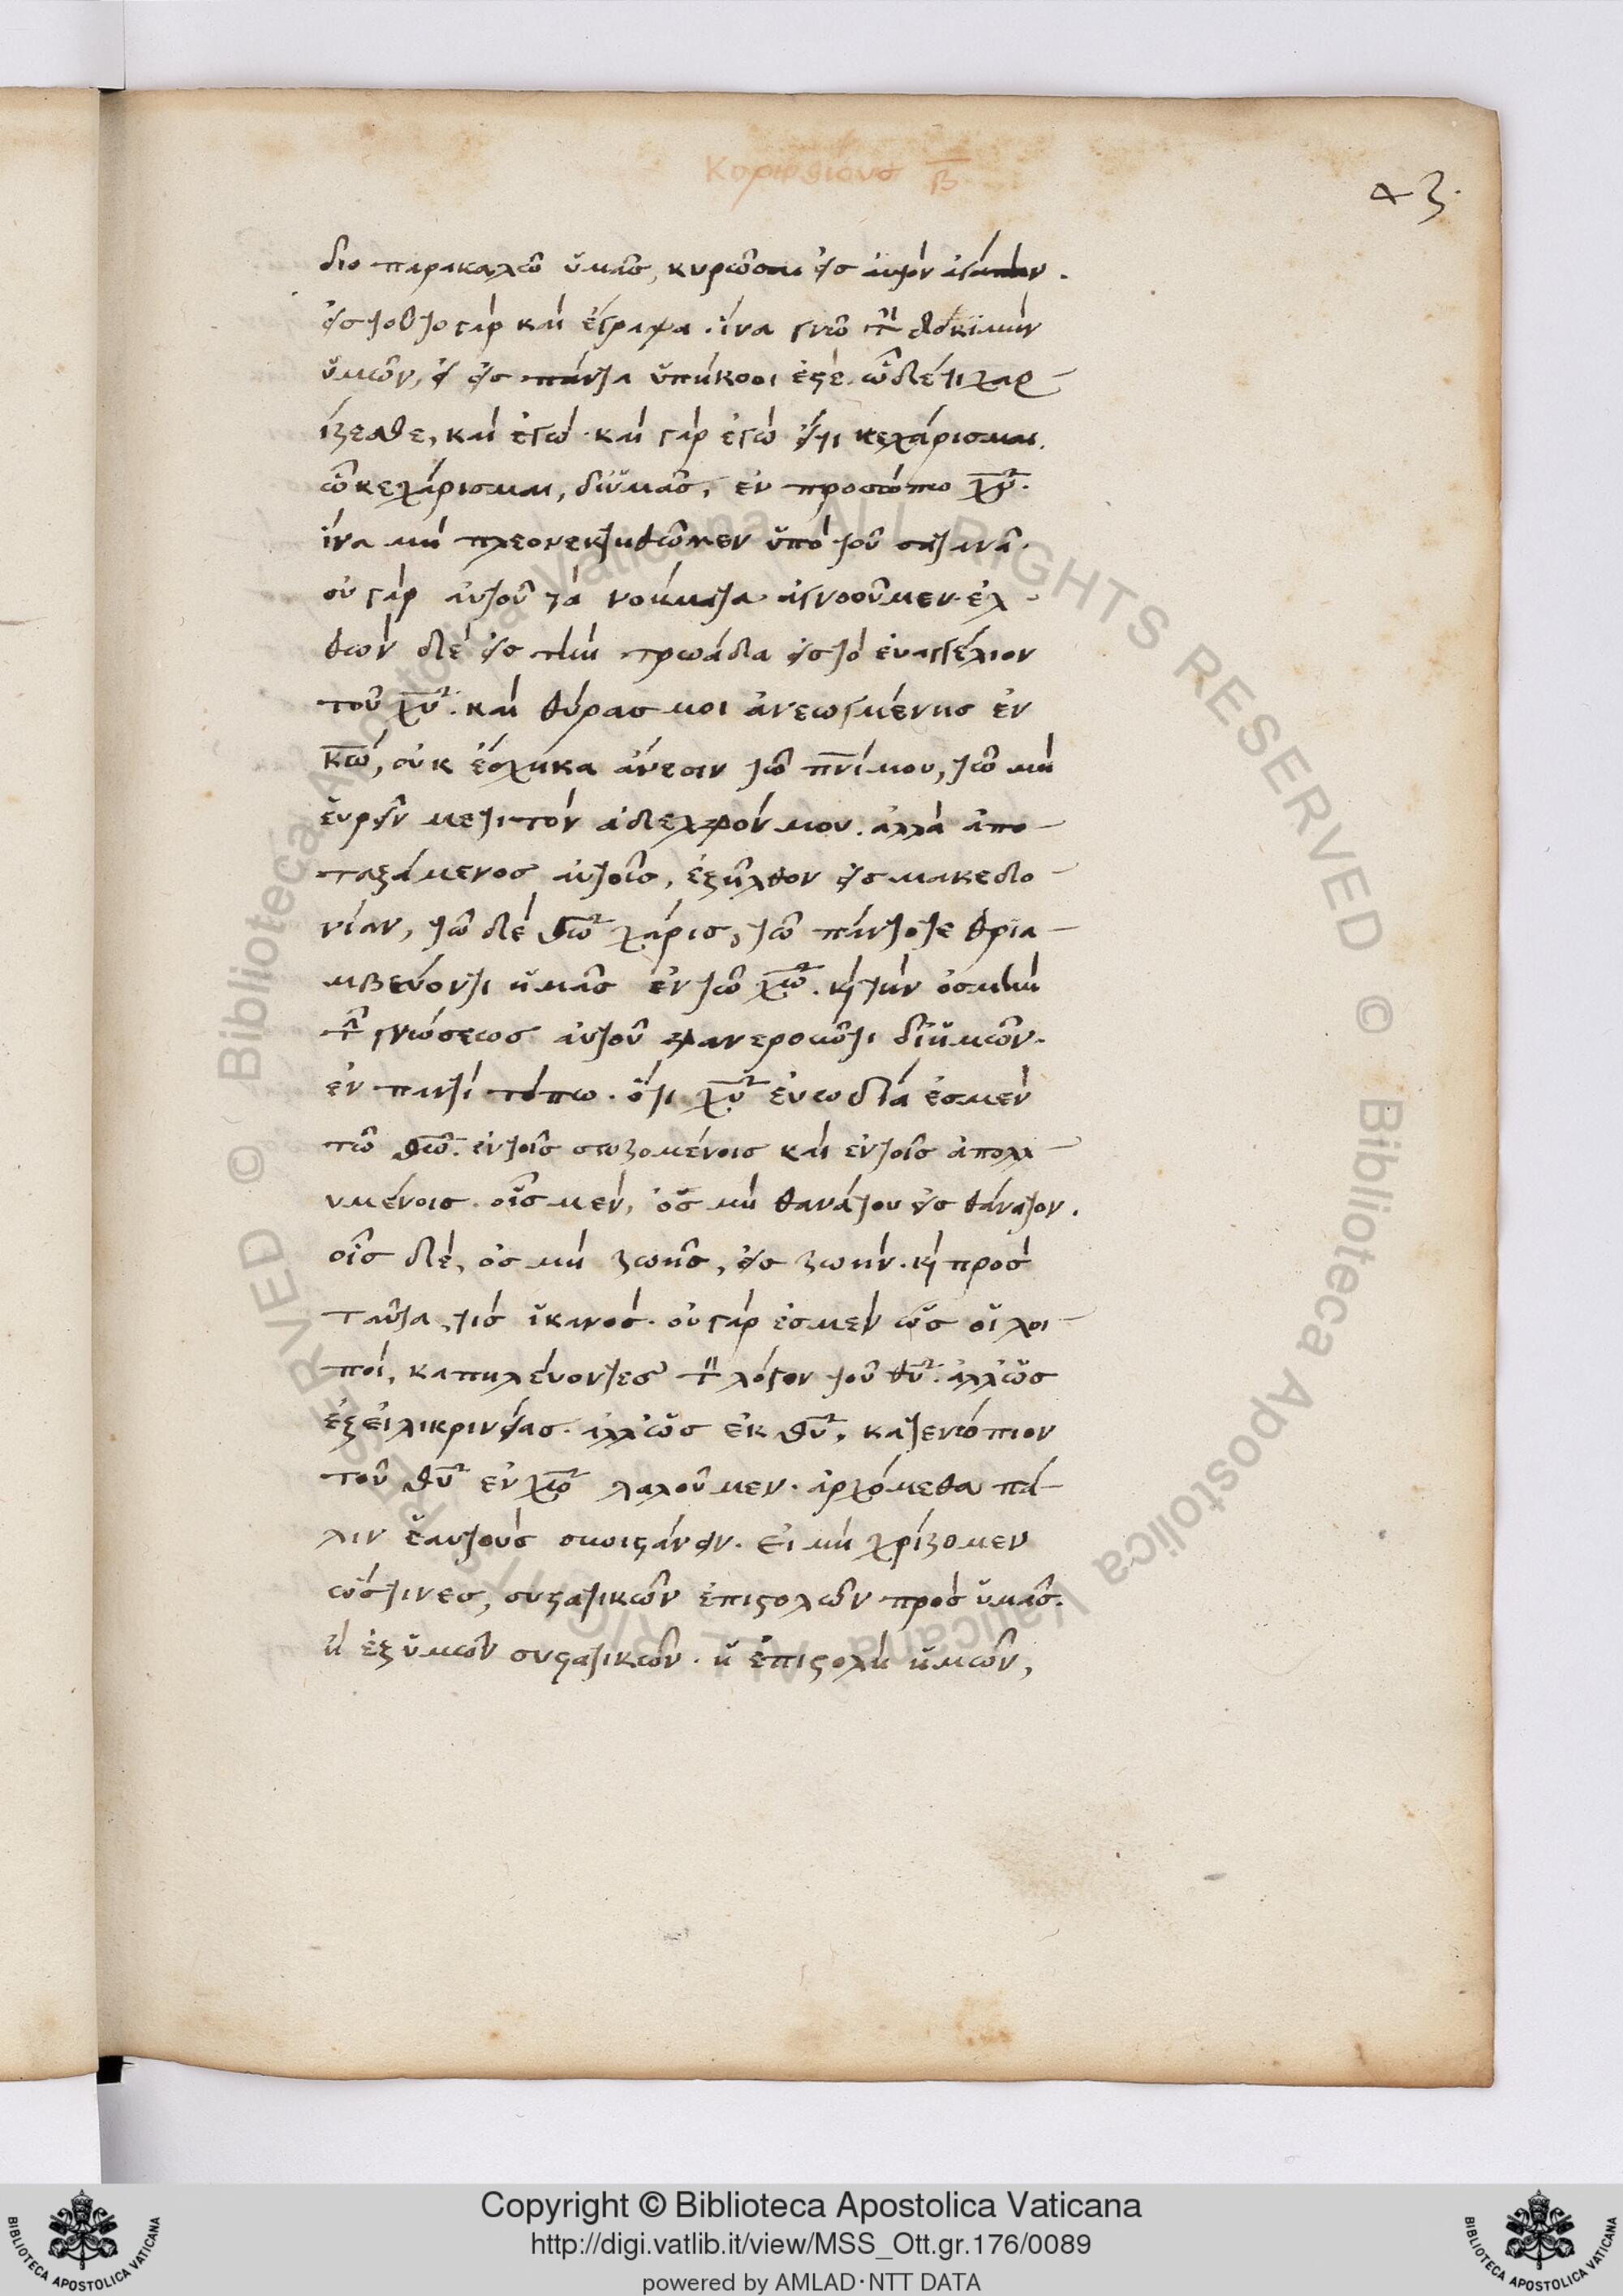 Κορινθίουσ β
43.
διο παρακαλῶ ὑμᾶσ, κυρῶσαι εἰσ ἀυτὸν ἀγάπην.
εἰσ τοῦτο γὰρ καὶ ἔγραψα. ἵνα γνῶ τὴν δοκιμὴν
ὑμῶν, εἰ εἰσ πάντα ὑπήκοοι ἐστὲ. ὧ δὲ τι χαρ
ίζεσθε, καὶ ἐγὼ. καὶ γὰρ ἐγὼ εἴ τι κεχάρισμαι.
ὧ κεχάρισμαι, δι ὑμᾶσ, ἐν προσώπω χυ.
ἵνα μὴ πλεονεκτηθῶμεν ὑπὸ τοῦ σατανᾶ.
ου γὰρ ἀυτοῦ τὰ νοήματα ἀγνοοῦμεν. ἐλ
θὼν δὲ εἰσ τὴν τρωάδα εἰσ τὸ ἐυαγγέλιον
τοῦ χυ. καὶ θύρασ μοι ἀνεωγμένησ ἐν
κω, ουκ ἔσχηκα ἄνεσιν τῶ πνί μου, τῶ μὴ
ἑυρεῖν με τίτον ἀδελφόν μου. ἀλλὰ ἀπο
ταξάμενοσ ἀυτοῖσ, ἐξῆλθον εἰσ μακεδο
νίαν, τῶ δὲ θω χάρισ, τῶ πάντοτε θρια
μβεύοντι ἡμᾶσ ἐν τῶ χω. κὶ τὴν ὀσμὴν
τῆσ γνώσεωσ ἀυτοῦ φανεροῶντι δι ἡμῶν.
ἐν παντὶ τόπω. ὅτι χυ ἐυωδία ἐσμὲν
τῶ θω. ἐν τοῖσ σωζομένοισ καὶ ἐν τοῖσ ἀπολλ
υμένοισ. οἷσ μὲν, ὀσμὴ θανάτου εἰσ θάνατον.
οἷσ δὲ, ὀσμὴ ζωῆσ, εἰσ ζωήν. κὶ πρὸσ
ταῦτα, τὶσ ἱκανὸσ. οὐ γὰρ ἐσμὲν ὡσ οἱ λοι
ποὶ, καπηλέυοντεσ τὸν λόγον τοῦ θυ. ἀλλ ὡσ
ἐξ ειλικρινείασ. ἀλλ ὡσ ἐκ θυ, κατενώπιον
τοῦ θυ ἐν χω λαλοῦμεν. ἀρχόμεθα πά
λιν ἑαυτοὺσ συνιστάνειν. εἰ μὴ χρίζομεν
ὥσ τινεσ, συστατικῶν ἐπιστολῶν πρὸσ ὑμᾶσ.
ἢ ἐξ ὑμῶν συστατικῶν. ἡ ἐπιστολὴ ἡμῶν,
Copyright © Biblioteca Apostolica Vaticana
http://digi.vatlib.it/view/MSS_Ott.gr.176/0089
powered by AMLAD·NTT DATA